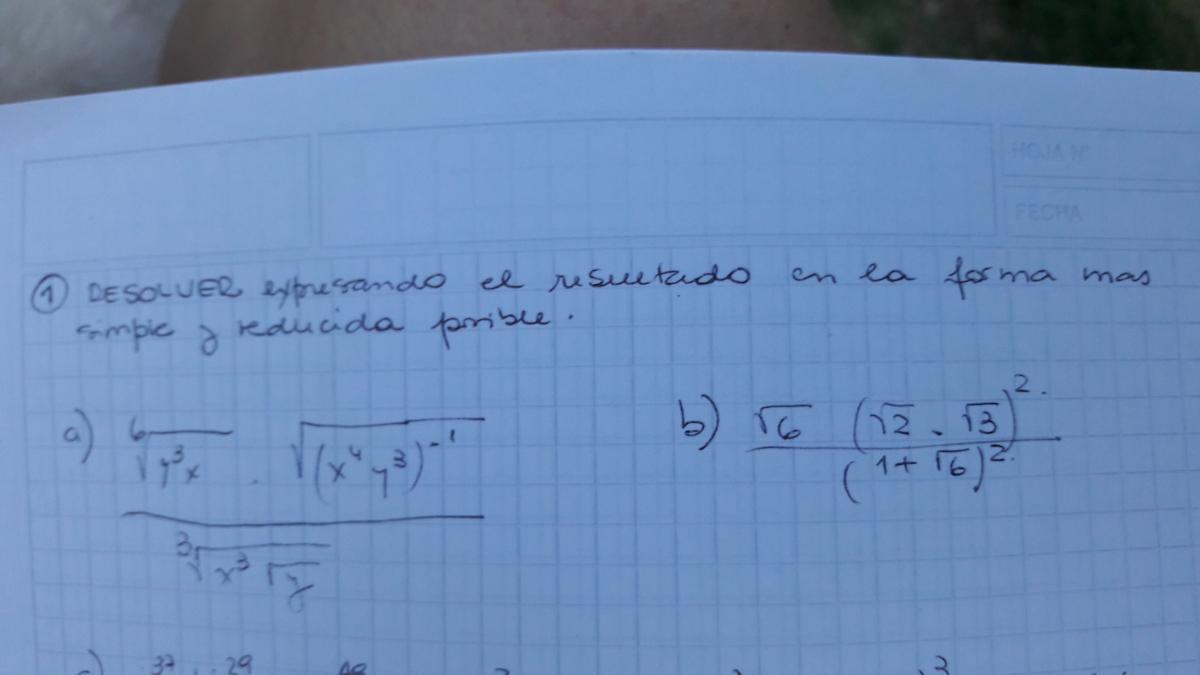 HOJA N°
FECHA
① RESOLVER expresando el resultado en la forma mas
simple y reducida posible.
a) ⁶√(y³x) . √((x⁴y³)⁻¹) / ³√(x³√y)
b) √6 (√2 - √3)². / (1+√6)².